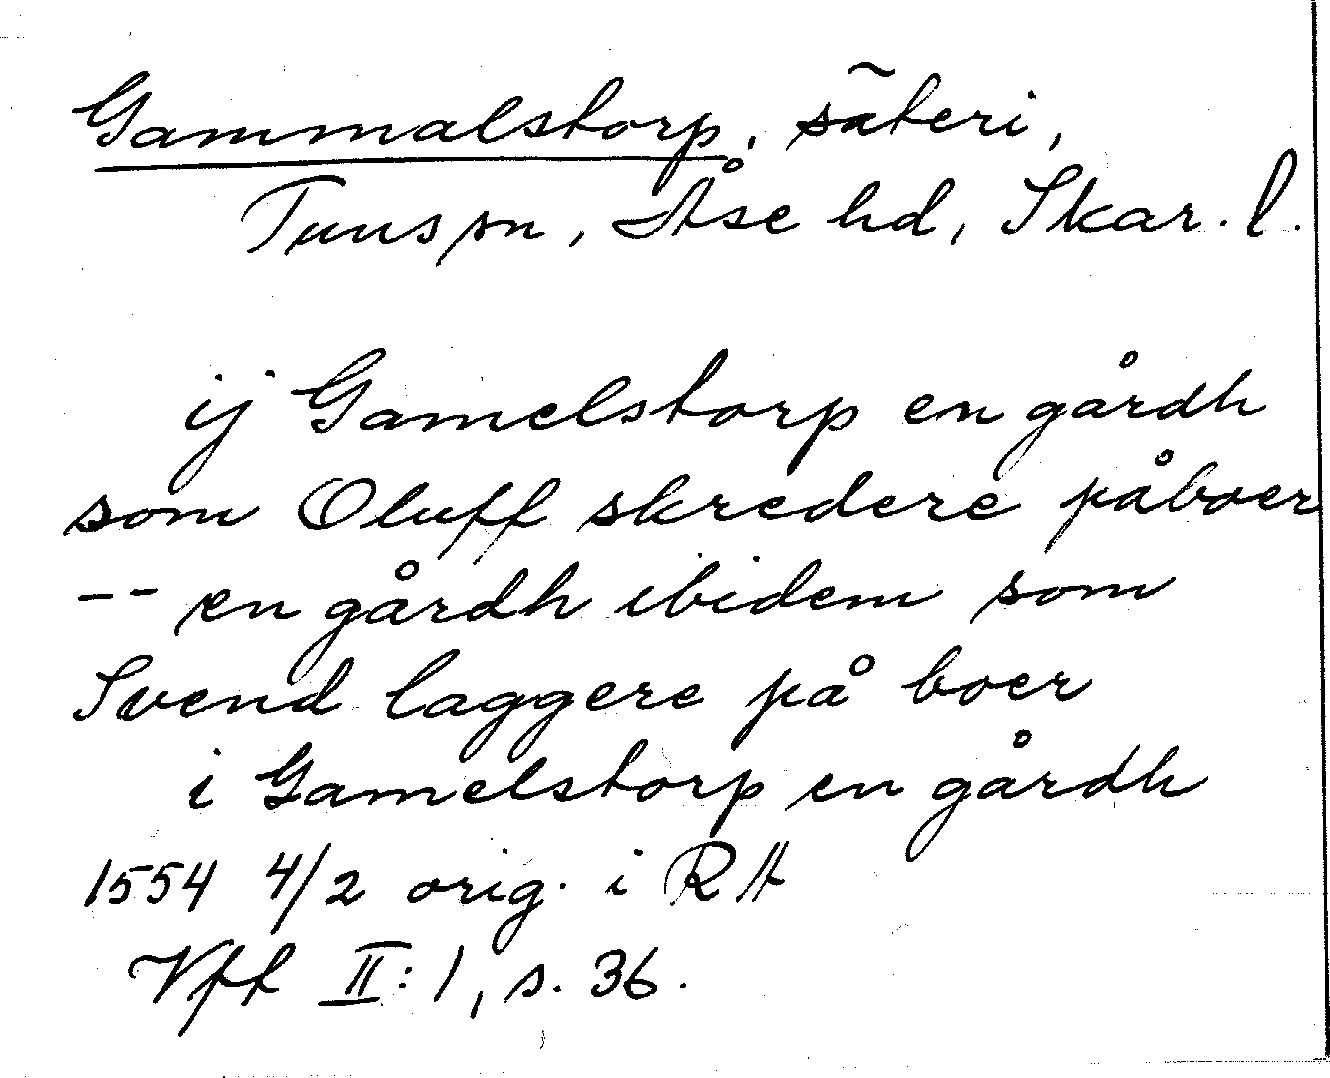 Gammalstorp, säteri,
Tuns sn, Åse hd, Skar. l.
ij Gamelstorp en gårdh
som Oluff skredere påboer
-- en gårdh ibidem som
Svend laggere på boer
i Gamelstorp en gårdh
1554 4/2 orig. i RA
Vff II:1, s. 36.